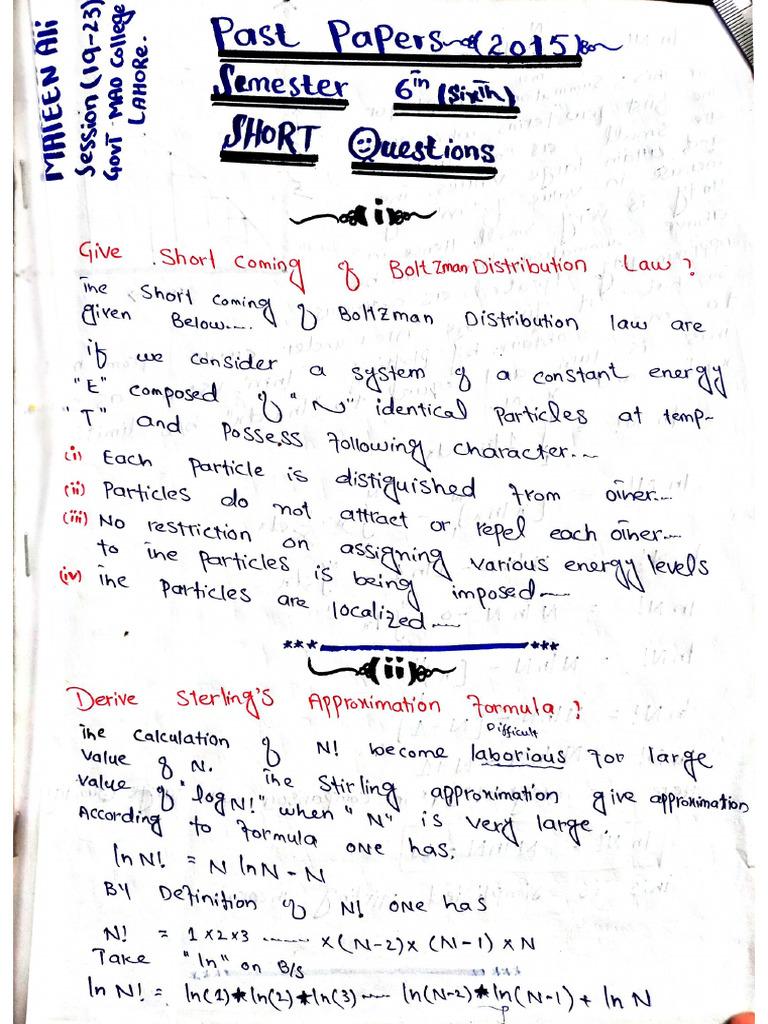 MATEEN Ali
Session (19-23)
Govt MAO College
LAHORe.
Past Papers (2015)
Semester 6th (Sixth)
SHORT Questions
(i)
Give Short coming of Boltzman Distribution Law?
The Short coming of Boltzman Distribution law are
given Below....
if we consider a system of a constant energy
"E" composed of "N" identical Particles at temp-
"T" and Possess following character...
(i) Each Particle is distiguished from other...
(ii) Particles do not attract or repel each other...
(iii) No restriction on assigning various energy levels
to the particles is being imposed...
(iv) The Particles are localized...
***_______***
(ii)
Derive Sterling's Approximation Formula?
Difficult
The Calculation of N! become laborious for large
Value of N. The Stirling approximation give approximation
Value of "log N!" when "N" is very large.
According to Formula one has,
ln N! = N ln N - N
By Definition of N! one has
N! = 1 x 2 x 3 ...... x (N-2) x (N-1) x N
Take "ln" on B/S
ln N! = ln(1) * ln(2) * ln(3) .... ln(N-2) * ln(N-1) + ln N